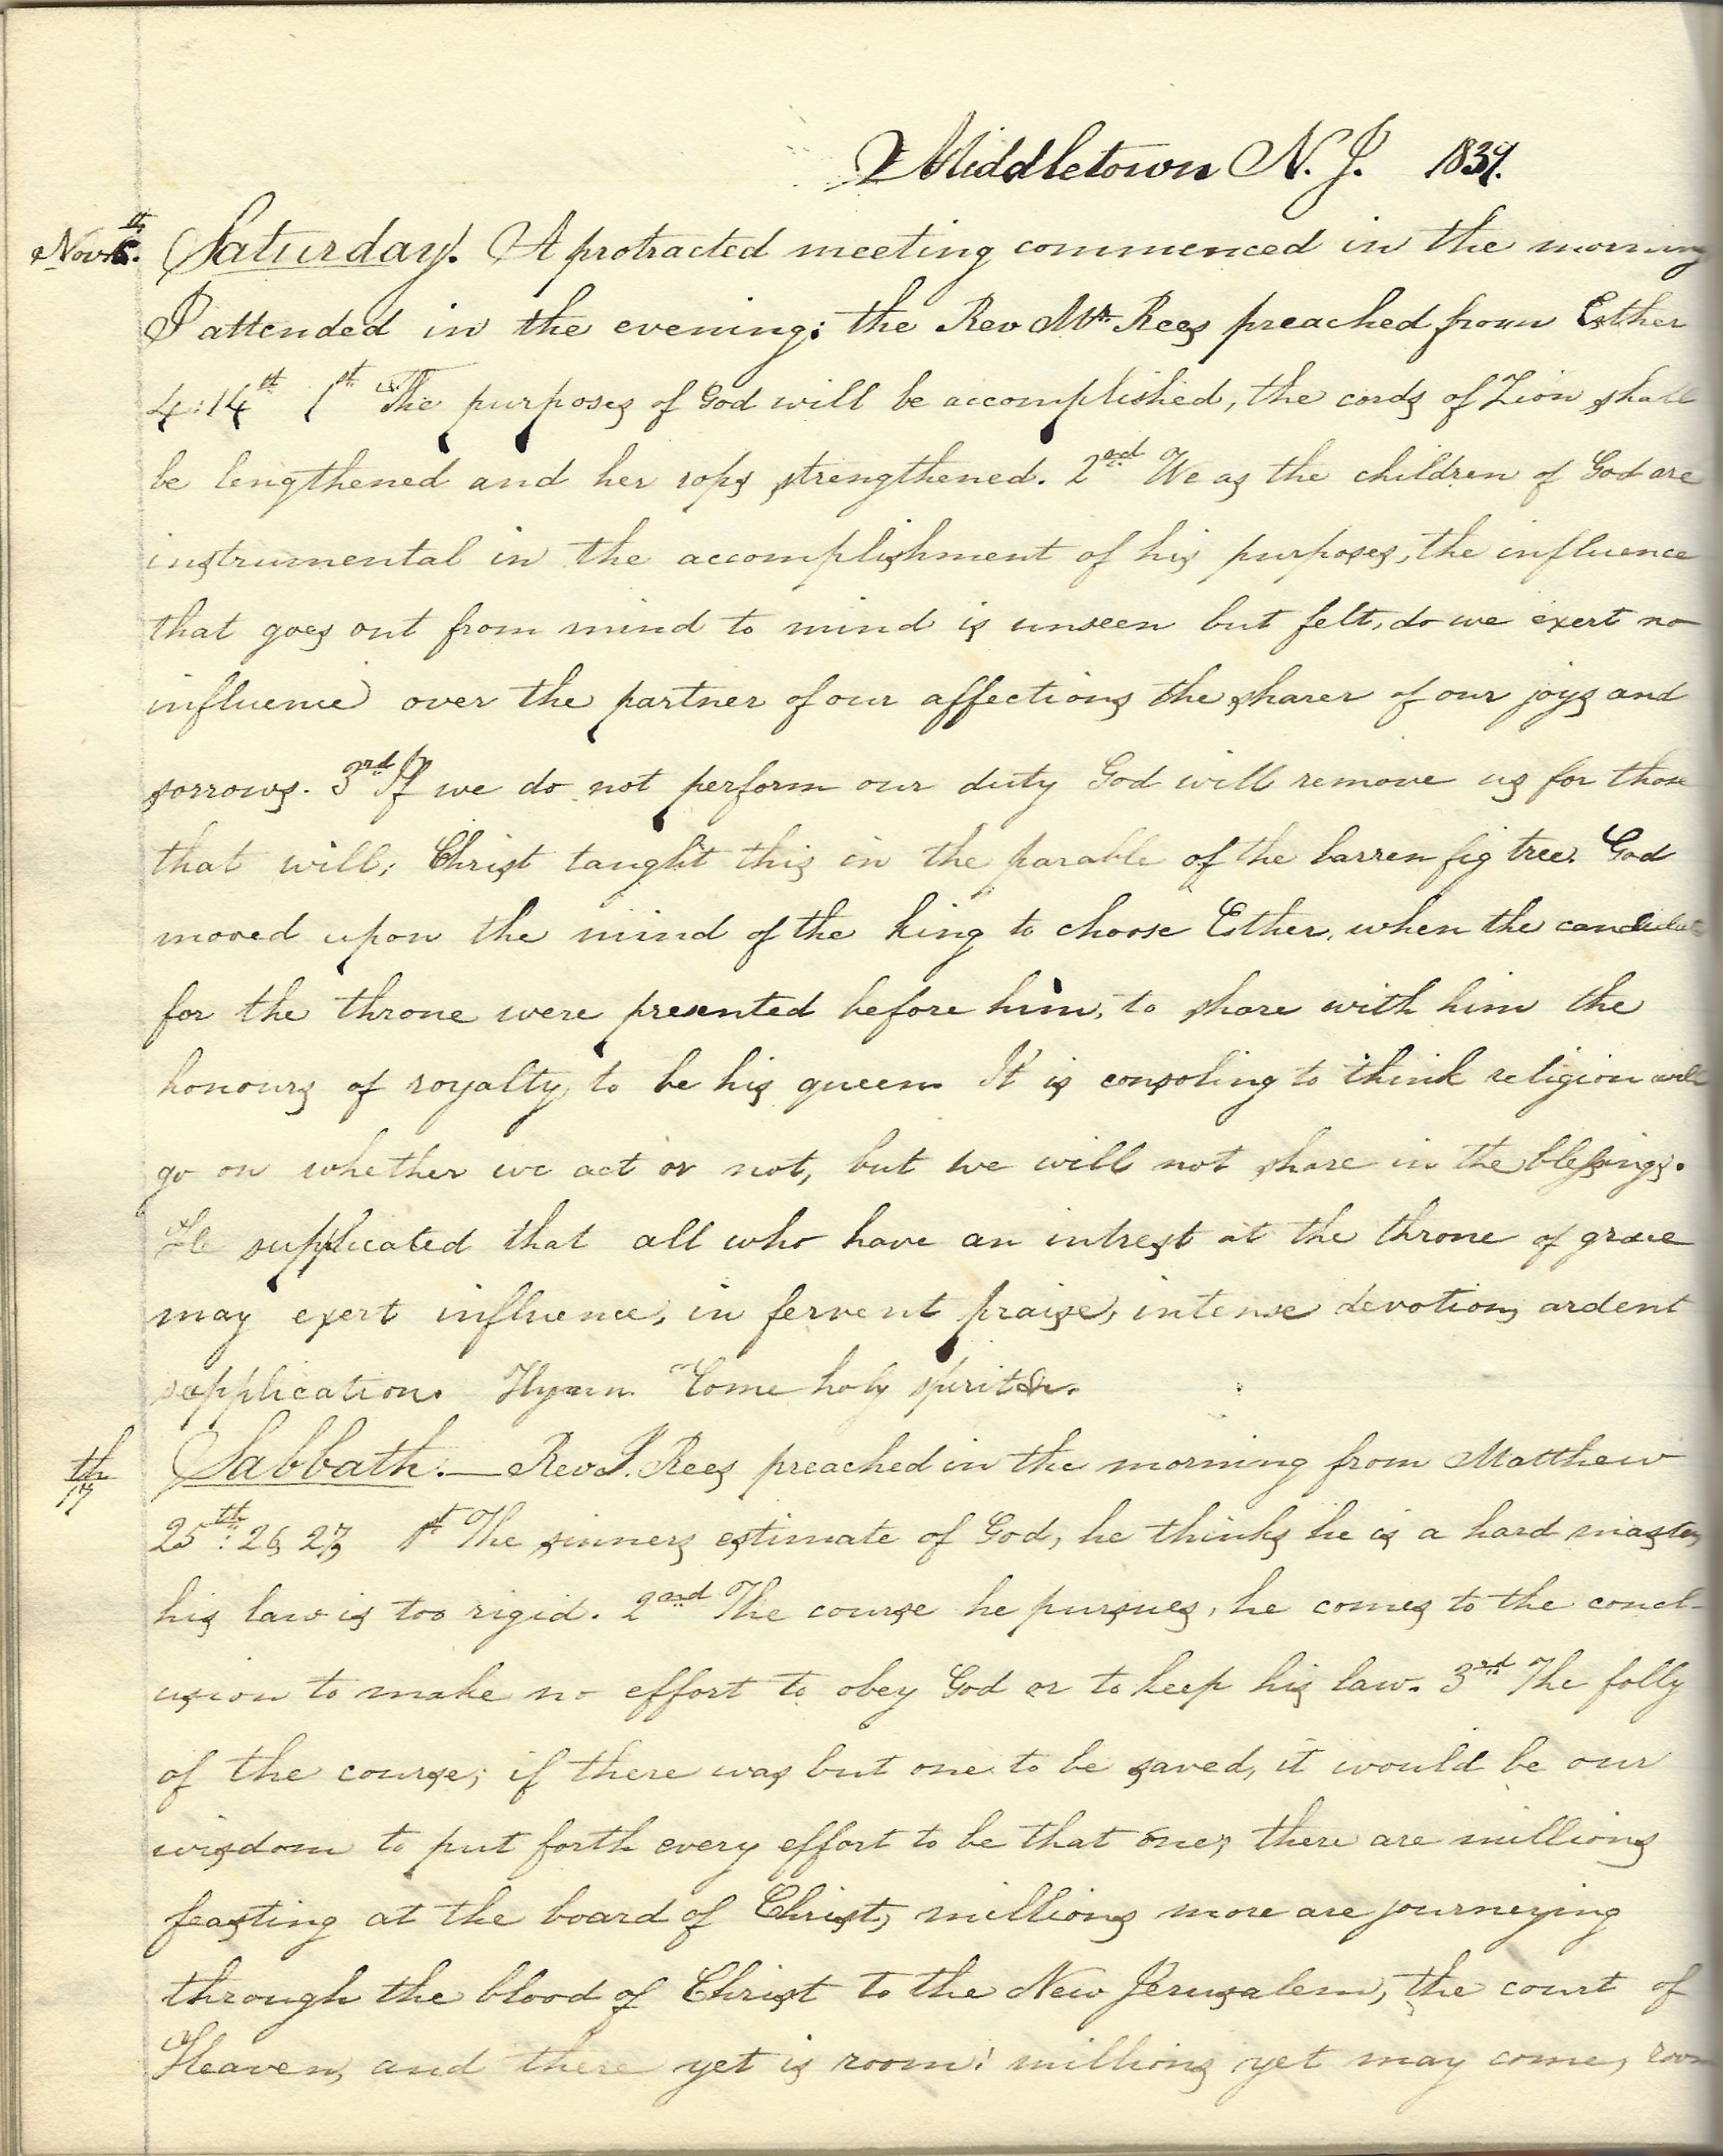 Middletown N. J. 1839.
Nov 16th. Saturday. A protracted meeting commenced in the morning
I attended in the evening; the Rev Mr. Rees preached from Esther
4:14th 1st The purposes of God will be accomplished, the cords of Zion shall
be lengthened and her rops strengthened. 2nd We as the children of God are
instrumental in the accomplishment of his purposes, the influence
that goes out from mind to mind is unseen but felt, do we exert no
influence over the partner of our affections the sharer of our joys and
sorrows. 3rd If we do not perform our duty God will remove us for those
that will; Christ taught this in the parable of the barren fig tree. God
moved upon the mind of the king to choose Esther, when the candidates
for the throne were presented before him, to share with him the
honours of royalty, to be his queen. It is consoling to think religion will
go on whether we act or not, but we will not share in the blessings.
He supplicated that all who have an intrest at the throne of grace
may exert influence, in fervent praise, intense devotion, ardent
supplication. Hymn Come holy spirit &c.
17th Sabbath.— Rev J. Rees preached in the morning from Matthew
25th: 26, 27, 1st The sinners estimate of God, he thinks he is a hard master,
his law is too rigid. 2nd The course he pursues, he comes to the concl-
usion to make no effort to obey God or to keep his law. 3rd The folly
of the course; if there was but one to be saved, it would be our
wisdom to put forth every effort to be that one, there are millions
feasting at the board of Christ, millions more are journeying
through the blood of Christ to the New Jerusalem, the court of
Heaven, and there yet is room! millions yet may come, room